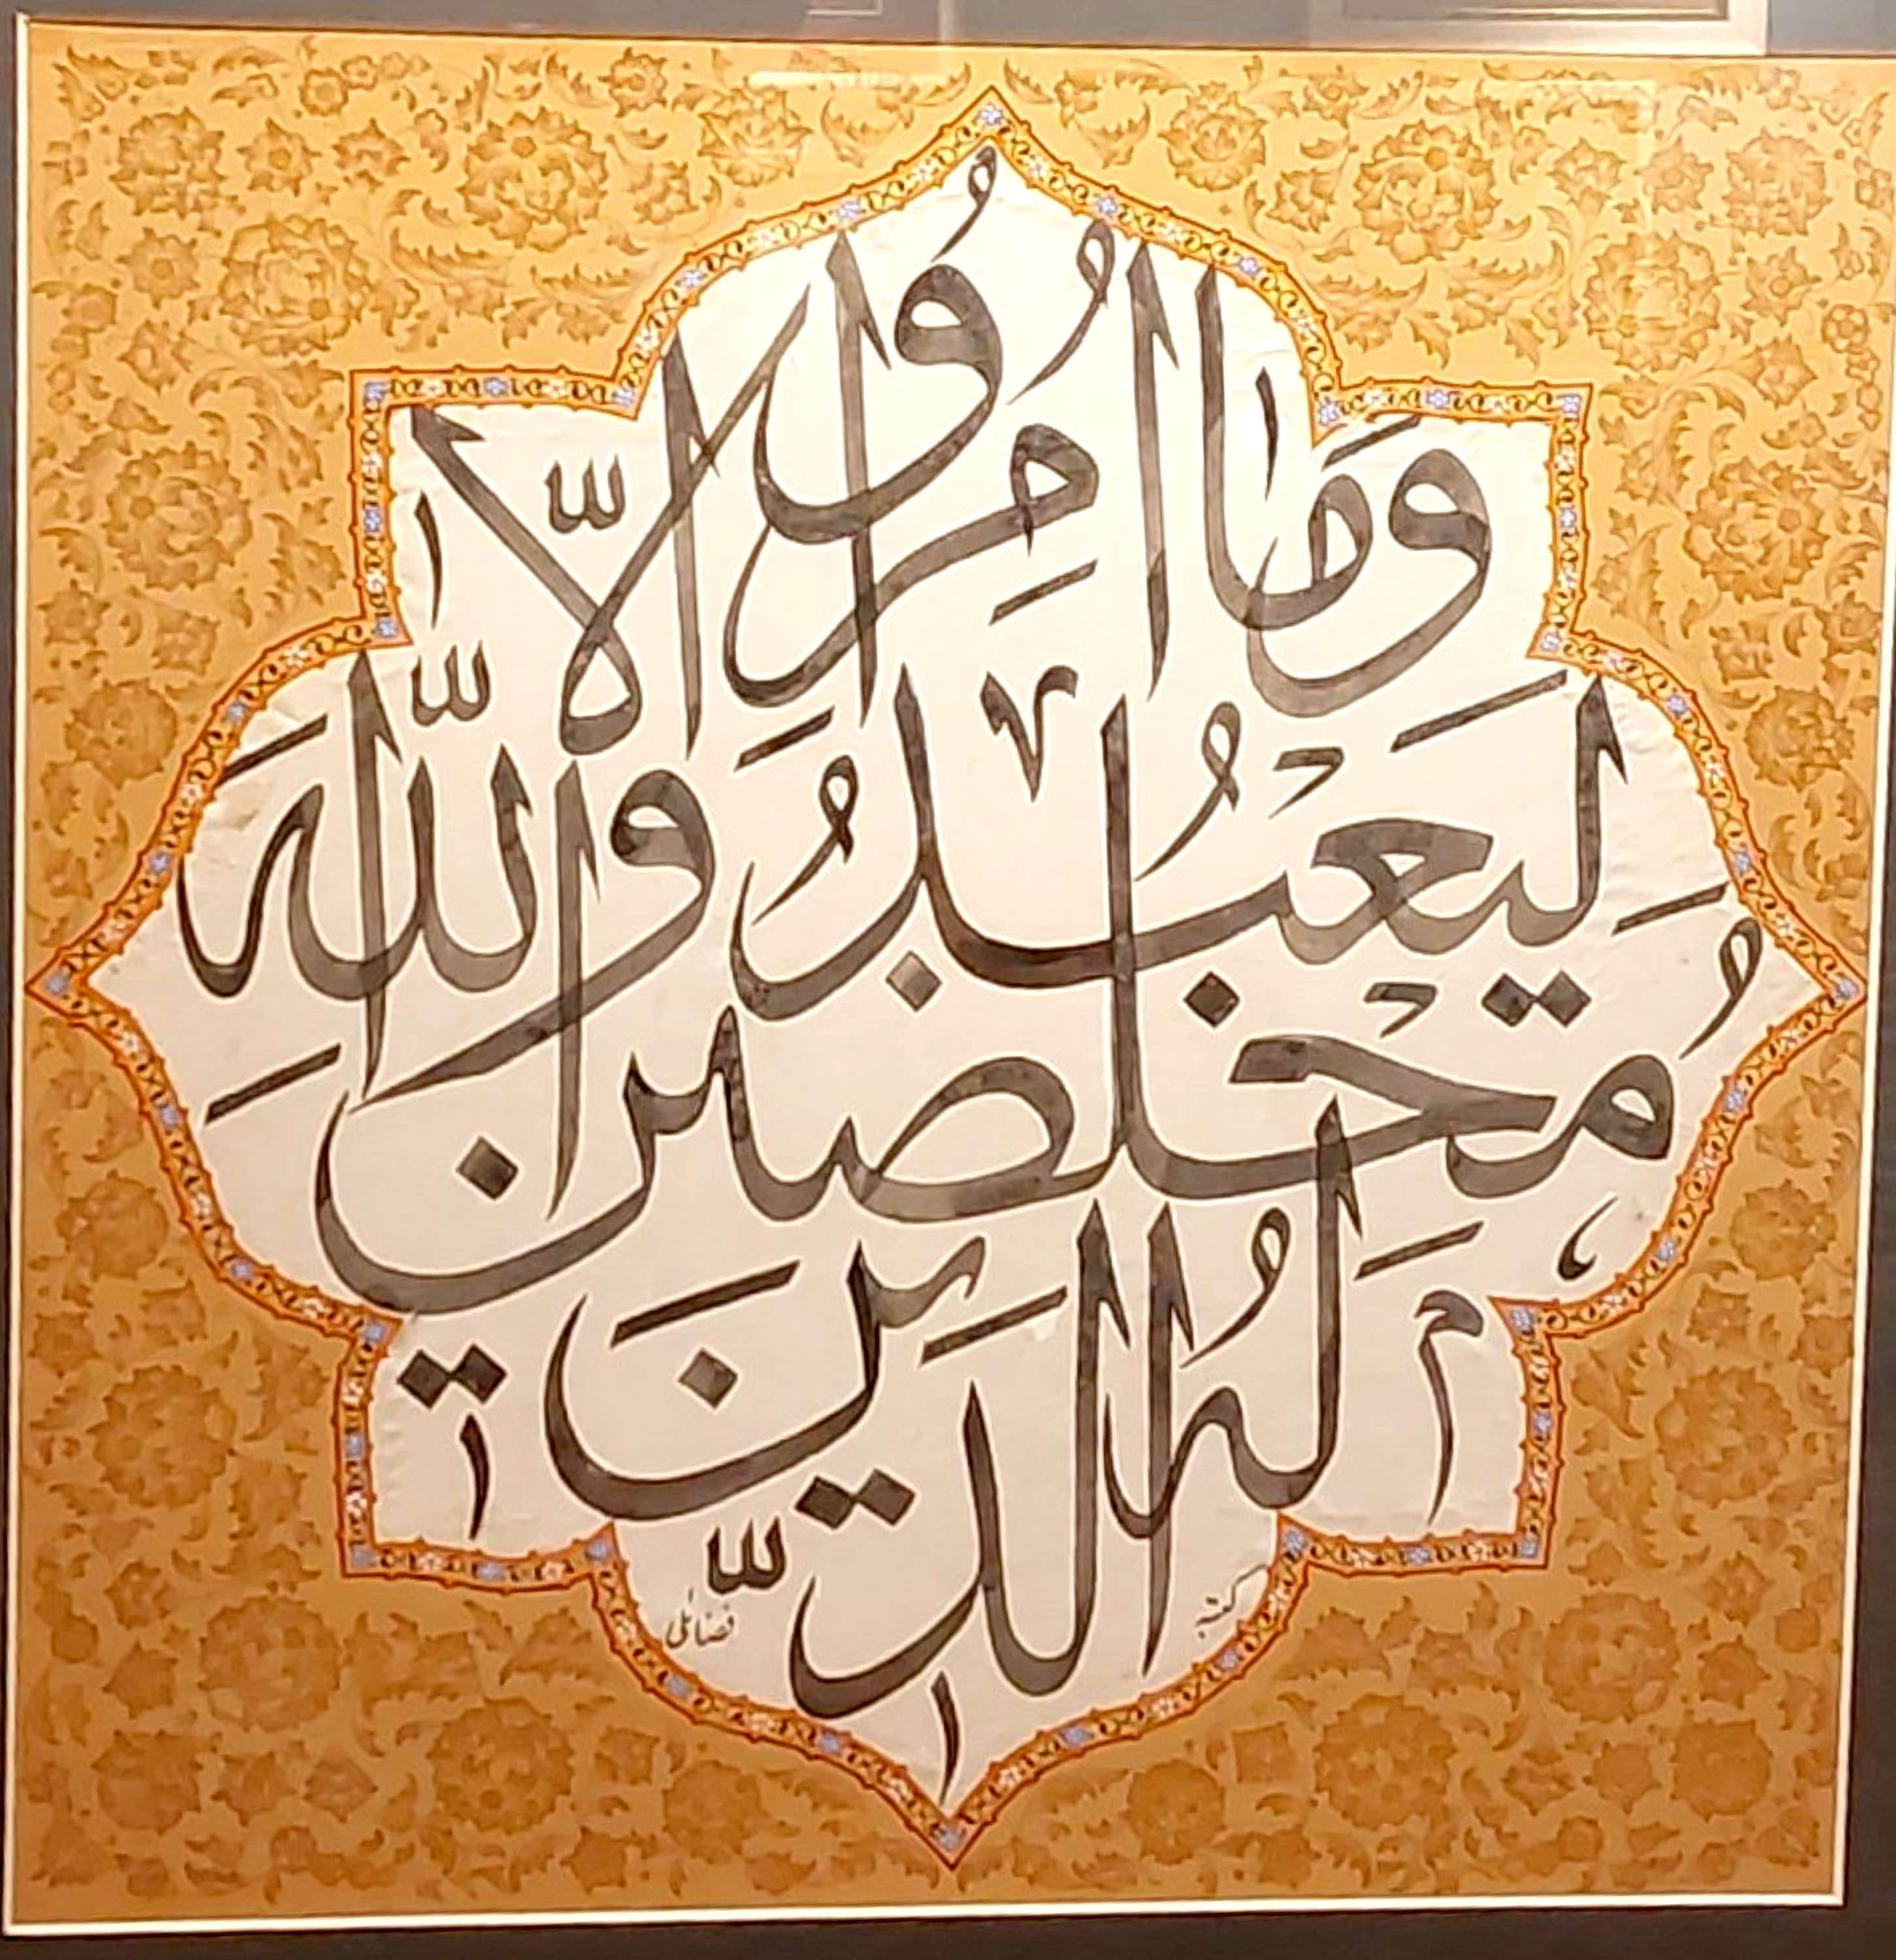 وَمَا أُمِرُوا إِلَّا
لِيَعْبُدُوا اللَّهَ
مُخْلِصِينَ
لَهُ الدِّينَ
کتبه فضائلی